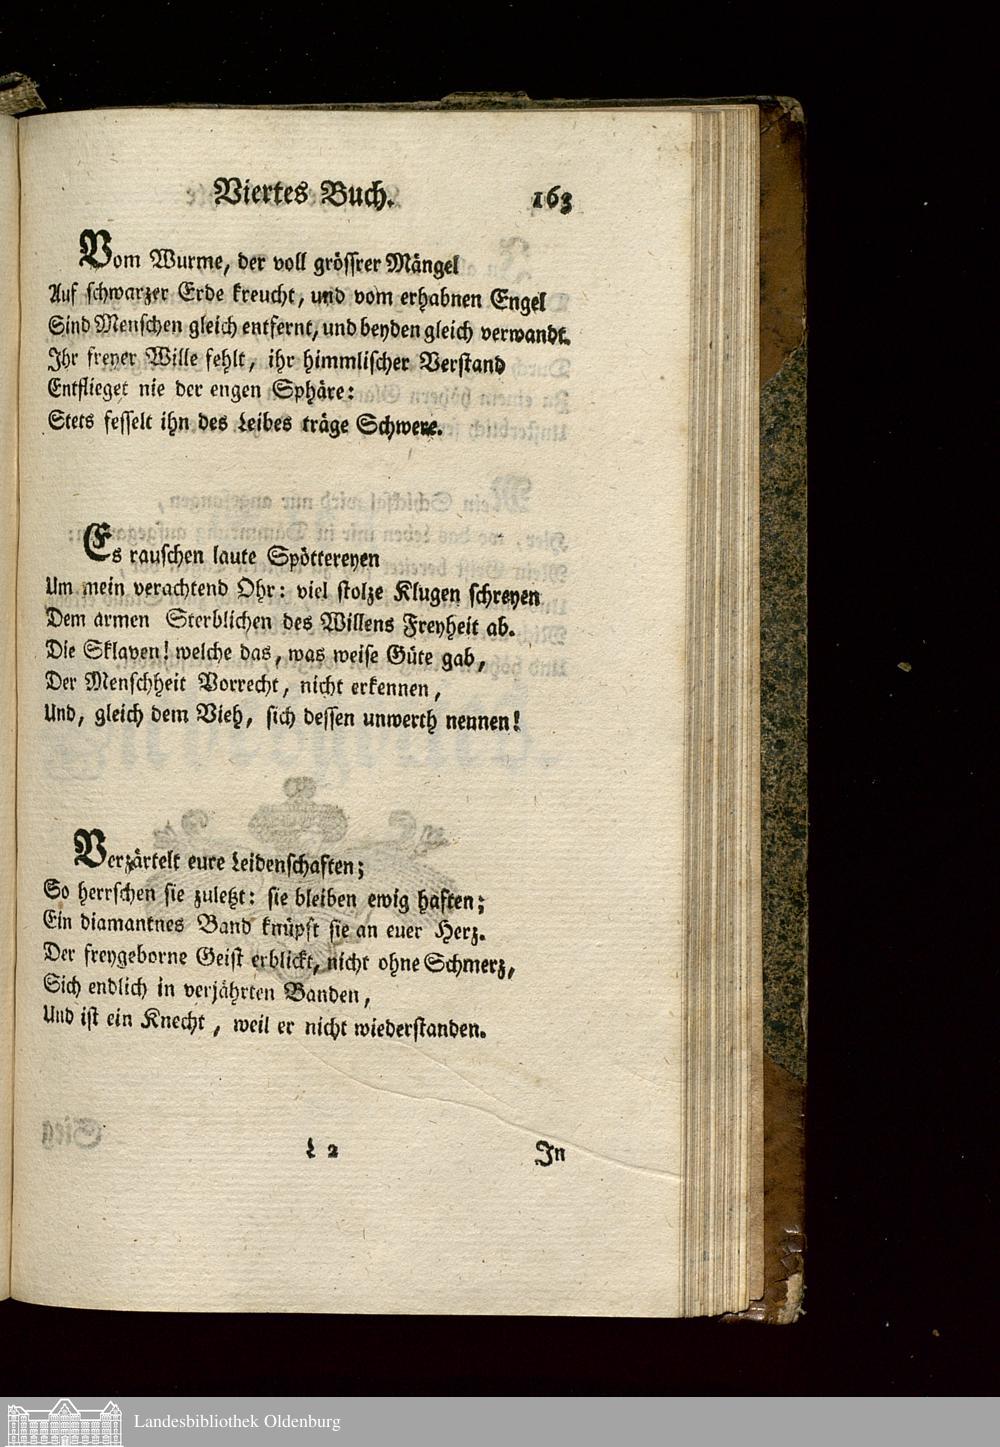 Viertes Buch. 163
Vom Wurme, der voll grössrer Mängel
Auf schwarzer Erde kreucht, und vom erhabnen Engel
Sind Menschen gleich entfernt, und beyden gleich verwandt.
Ihr freyer Wille fehlt, ihr himmlischer Verstand
Entflieget nie der engen Sphäre:
Stets fesselt ihn des Leibes träge Schwere.
Es rauschen laute Spöttereyen
Um mein verachtend Ohr: viel stolze Klugen schreyen
Dem armen Sterblichen des Willens Freyheit ab.
Die Sklaven! welche das, was weise Güte gab,
Der Menschheit Vorrecht, nicht erkennen,
Und, gleich dem Vieh, sich dessen unwerth nennen!
Verzärtelt eure Leidenschaften;
So herrschen sie zuletzt: sie bleiben ewig haften;
Ein diamantnes Band knüpft sie an euer Herz.
Der freygeborne Geist erblickt, nicht ohne Schmerz,
Sich endlich in verjährten Banden,
Und ist ein Knecht, weil er nicht wiederstanden.
L 2 In
Landesbibliothek Oldenburg